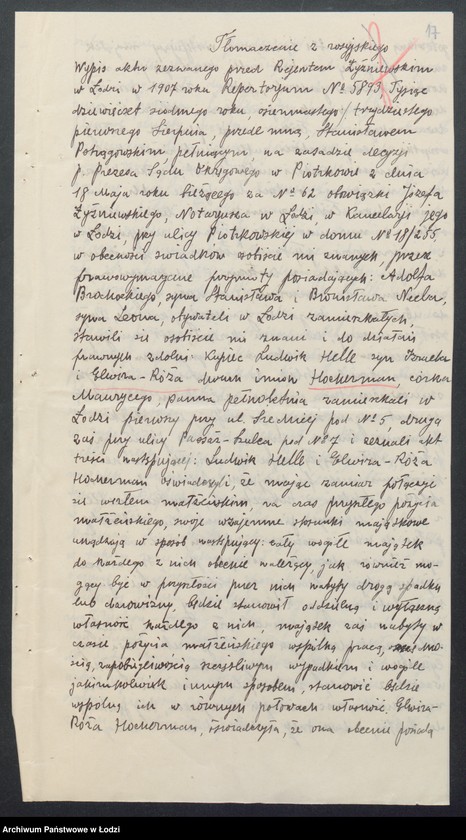 17
Tłomaczenie z rosyjskiego
Wypis aktu zeznanego przed Rejentem Żyźniewskim
w Łodzi w 1907 roku Repertoryum № 5893. Tysiąc
dziewięćset siódmego roku, osiemnastego / trzydziestego
pierwszego Sierpnia, przede mną, Stanisławem
Potrzgowskim pełniącym na zasadzie decyzji
p. Prezesa Sądu Okręgowego w Piotrkowie z dnia
18 Maja roku bieżącego za № 62 obowiązki Józefa
Żyźniewskiego, Notaryusza w Łodzi, w Kancelaryi jego
w Łodzi, przy ulicy Piotrkowskiej w domu № 18/255
w obecności świadków osobiście mi znanych, przez
prawo wymagane przymioty posiadających: Adolfa
Brochockiego, syna Stanisława i Bronisława
syna Leona, obywateli w Łodzi zamieszkałych,
stawili się osobiście mi znani i do działań
prawnych zdolni: Kupiec Ludwik Helle syn Izraela
i Elwira-Róża dwuch imion Hocherman, córka
Maurycego, panna pełnoletnia zamieszkali w
Łodzi pierwszy przy ul. Średniej pod № 5, druga
zaś przy ulicy Passaż-Szulca pod № 7 i zeznali akt
treści następującej: Ludwik Helle i Elwira-Róża
Hocherman oświadczyli, że mając zamiar połączyć
się węzłem małżeńskim, na czas przyszłego pożycia
małżeńskiego, swoje wzajemne stosunki majątkowe
urządzają w sposób następujący: cały wogóle majątek
do każdego z nich obecnie należący, jak również mo-
gący być w przyszłości przez nich nabyty drogą spadku
lub darowizny, będzie stanowił oddzielną i wyłączną
własność każdego z nich, majątek zaś nabyty w
czasie pożycia małżeńskiego wspólną pracą,
zapobiegliwością szczęśliwym wypadkiem i wogóle
jakimkolwiek innym sposobem, stanowić będzie
wspólną ich w równych połowach własność. Elwira-
Róża Hocherman, oświadczyła, że ona obecnie posiada
Archiwum Państwowe w Łodzi